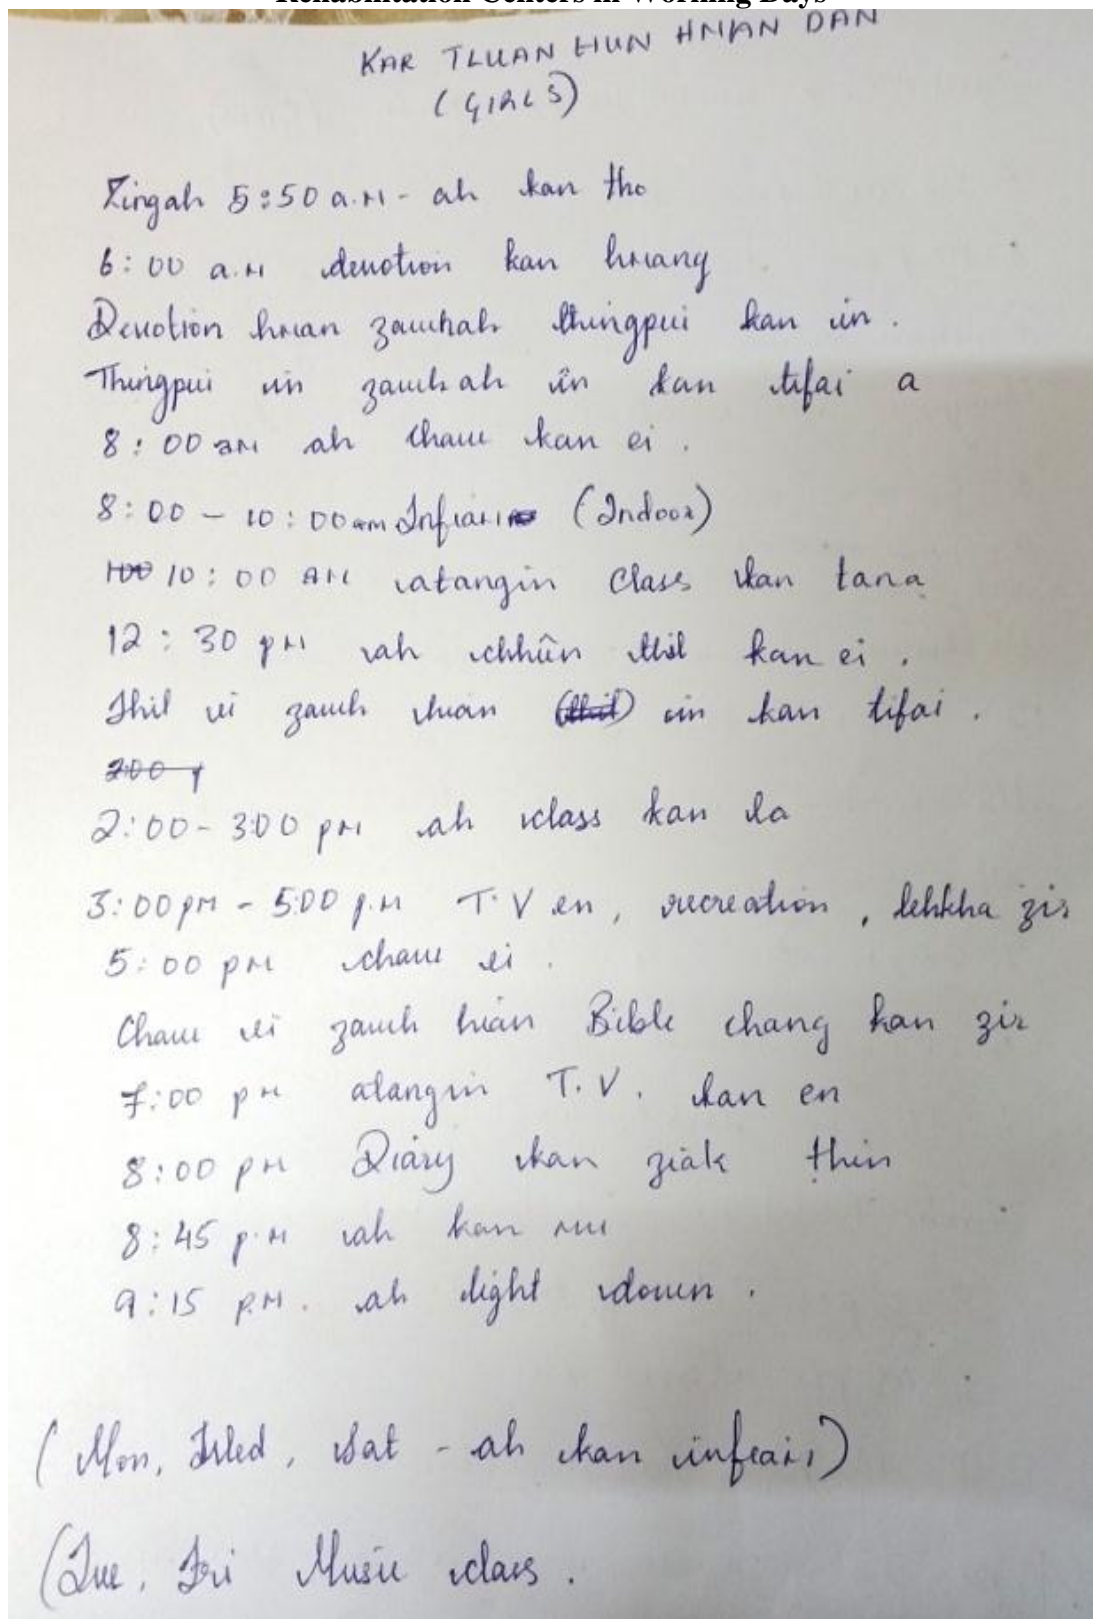 Rehabilitation Centers in Working Days
KAR TLUAN HUN HMAN DAN
(GIRLS)
Zingah 5:50 a.m - ah kan tho
6:00 a.m devotion kan hmang
Devotion hman zawhah thingpui kan in.
Thingpui in zawh ah in kan tifai a
8:00 am ah chaw kan ei.
8:00 - 10:00 am Infiam (Indoor)
10:00 AM atangin class kan tan a
12:30 pm ah chhûn thil kan ei.
Thil ei zawh chuan in kan tifai.
2:00 - 3:00 pm ah class kan la
3:00 pm - 5:00 p.m T.V en, recreation, lehkha zir
5:00 pm chaw ei.
Chaw ei zawh hian Bible chang kan zir
7:00 pm atangin T.V. kan en
8:00 pm Diary kan ziak ṭhin
8:45 p.m ah kan mu
9:15 p.m. ah light down.
(Mon, Wed, Sat - ah kan infiam)
(Tue, Fri Music class.